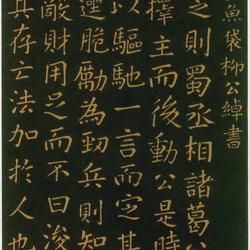 魚袋柳公綽書
之則蜀丞相諸葛公
擇主而後動公是時
以驅馳一言而定其
脆勵為勁兵則知
敵財用足而不曰浚
其存亡法加於人也